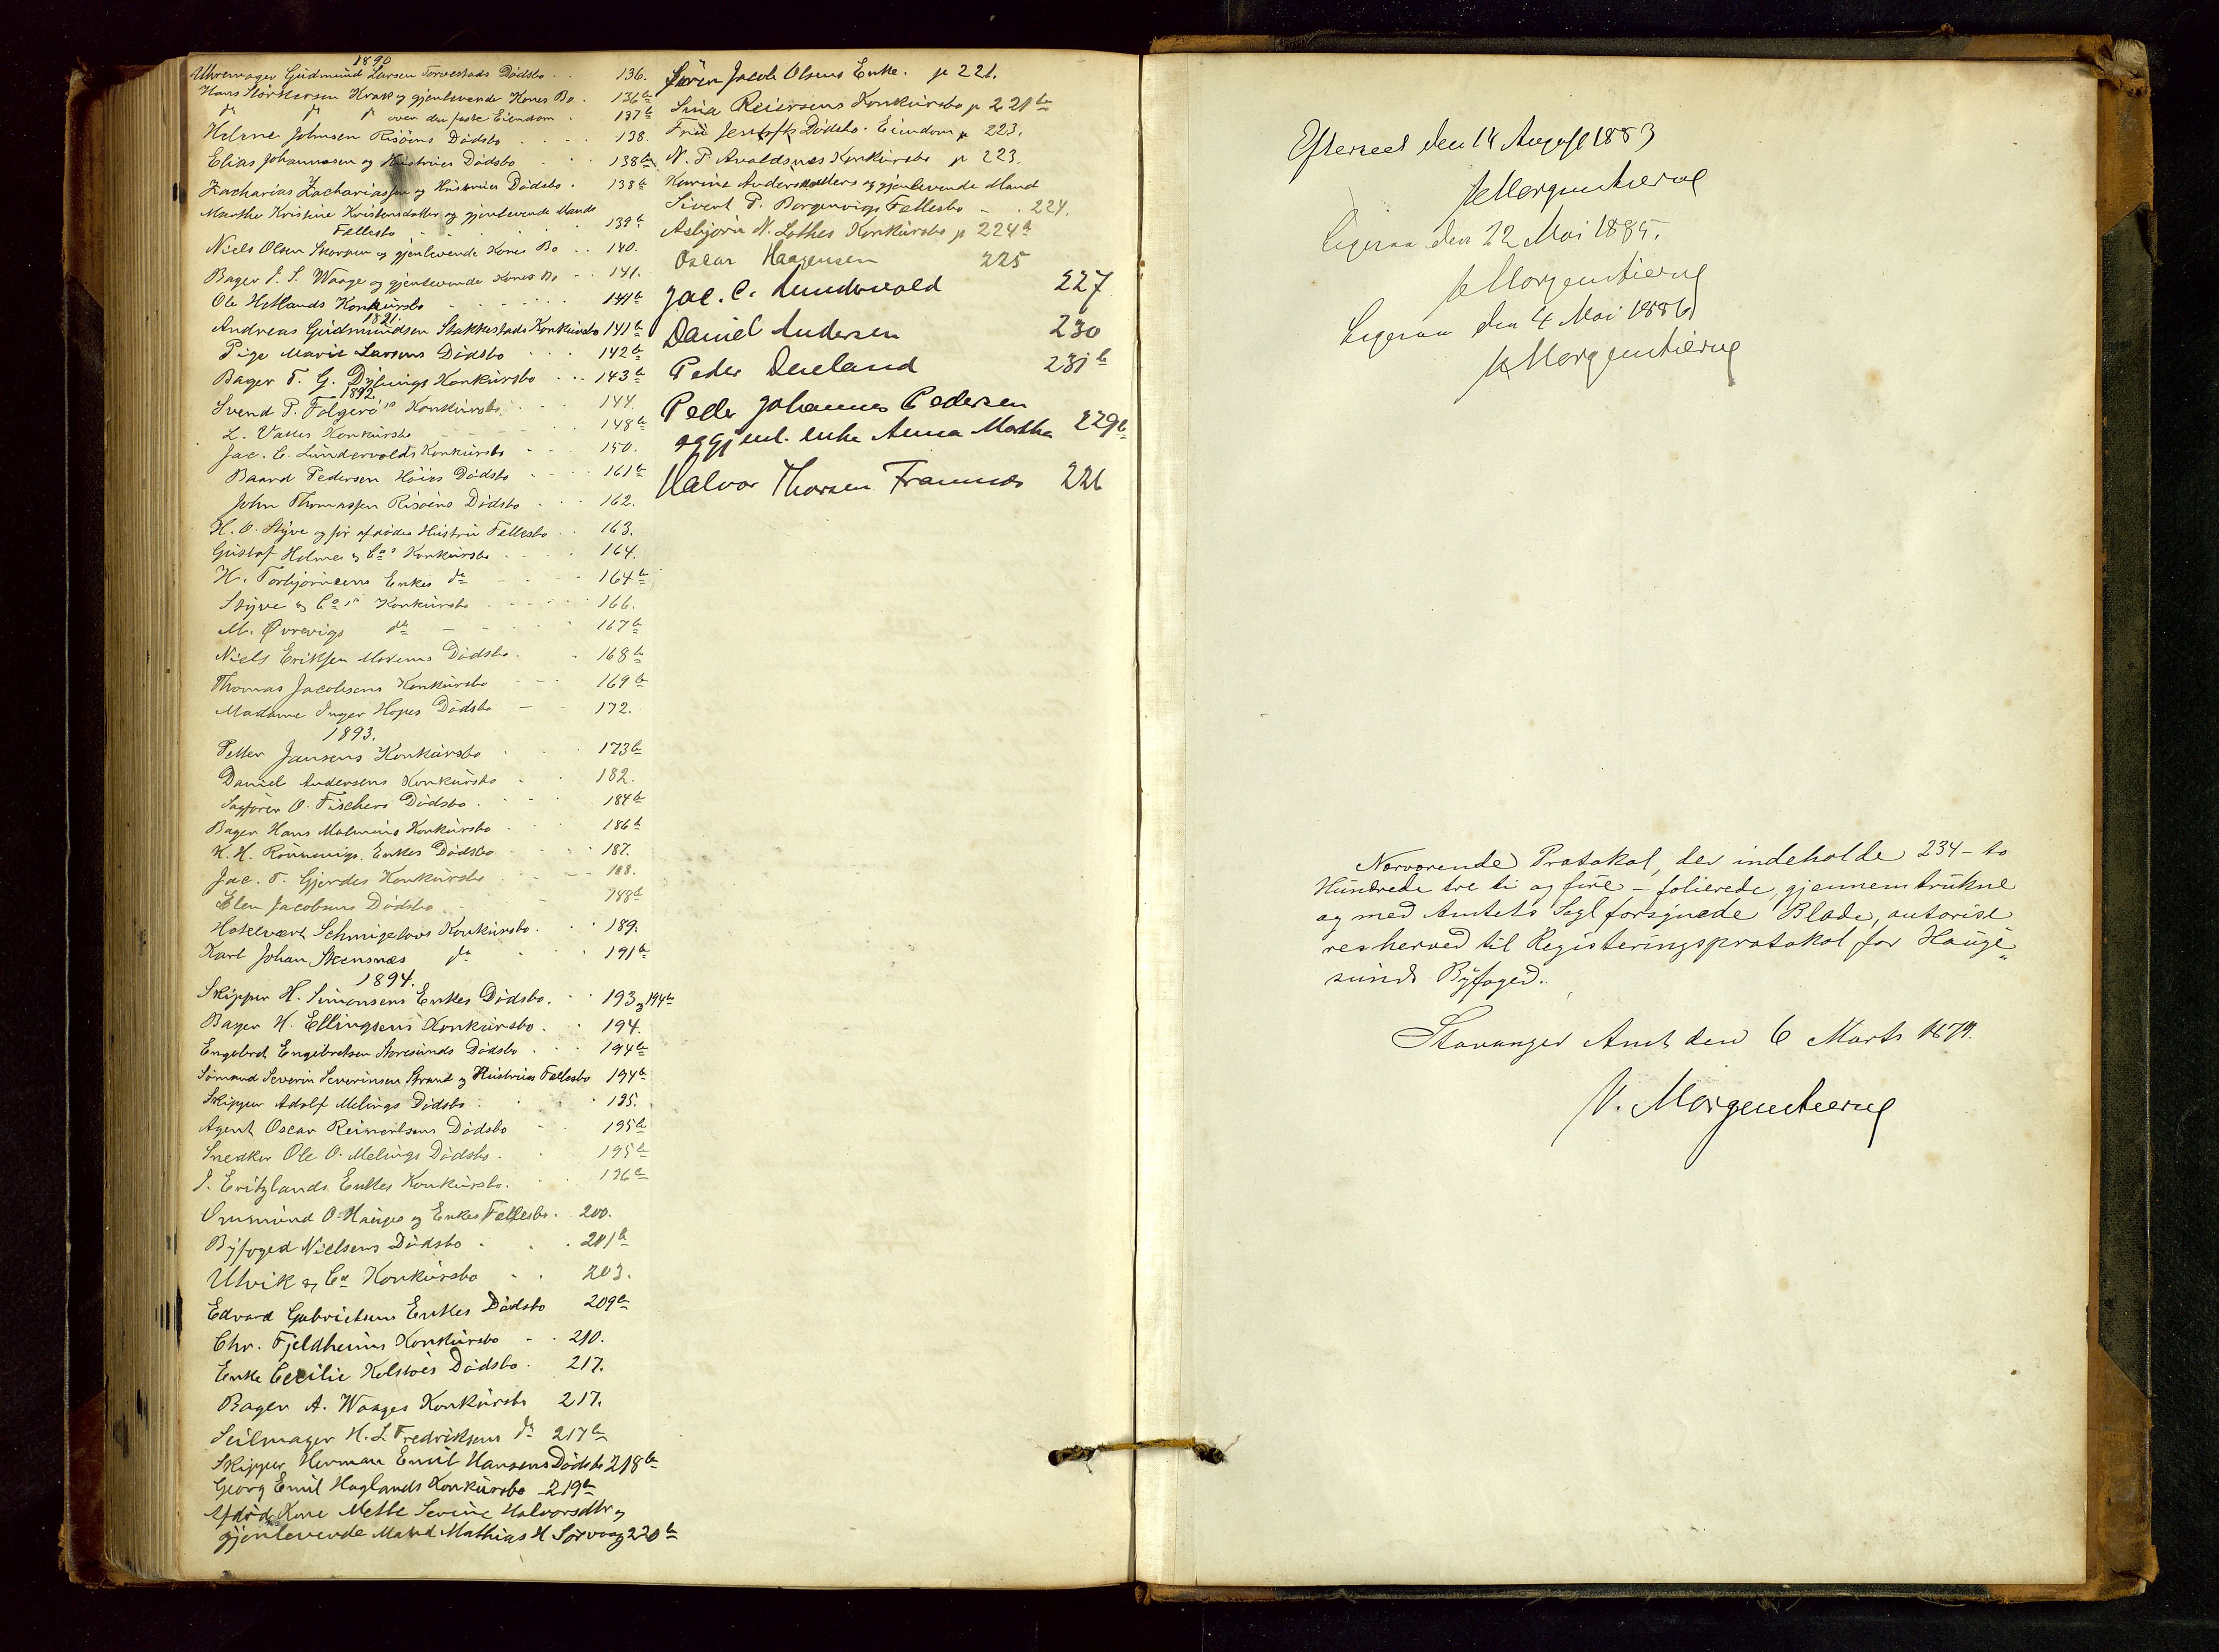 1890
Uhrmager Gudmund Larsen Torvestads Dødsbo 136.
Hans Størkersen Krak og gjenlevende Kones Bo 136b
do do do over den faste Eiendom 137b
Helene Johnsen Risøens Dødsbo 138.
Elias Johannesen og Hustrues Dødsbo 138b
Zacharias Zachariassen og Hustrues Dødsbo 138b
Marthe Kristine Kristensdatter og gjenlevende Mands
Fellesbo 139b
Niels Olsen og gjenlevende Kones Bo 140.
Bager J. S. Waage og gjenlevende Kones Bo 141.
Ole Hetlands Konkursbo 141b
1891.
Andreas Gudmundsen Stakkestads Konkursbo 141b
Pige Marie Larsens Dødsbo 142b
Bager T. G. Konkursbo 143b
1892.
Svend P. Følgerø's Konkursbo 144.
L. Valles Konkursbo 148b
Jac. C. Lundervolds Konkursbo 150.
Baard Pedersen Høies Dødsbo 161b
John Thomassen Risøens Dødsbo 162.
H. O. Styve og før afdøde Hustru Fellesbo 163.
Gustaf Holme & Co's Konkursbo 164.
H. Torbjørnsens Enkes do 164b
Styve & Co's Konkursbo 166.
M. Øvrevigs do 167b
Niels Eriksen Dødsbo 168b
Thomas Jacobsens Konkursbo 169b
Madame Inger Hopes Dødsbo 172.
1893.
Petter Jansens Konkursbo 173b
Daniel Andersens Konkursbo 182.
Sagfører O. Fischers Dødsbo 184b
Bager Hans Malmins Konkursbo 186b
K. H. Rønnevigs Enkes Dødsbo 187.
Jac. T. Gjerdes Konkursbo 188.
Elen Jacobsens Dødsbo 188b
Hotelvært Schmigelows Konkursbo 189.
Karl Johan Stensnæs do 191b
1894.
Skipper H. Simonsens Enkes Dødsbo. 193 og 194b
Bager H. Ellingsens Konkursbo. 194.
Engebret Engebretsen Storesunds Dødsbo 194b
Sømand Severin Severinsen Strand og Hustrues Fellesbo 194b
Skipper Adolf Melings Dødsbo 195.
Agent Oscar Reinertsens Dødsbo 195b
Snedker Ole O. Melings Dødsbo. 195b
J. Eritzlands Enkes Konkursbo. 196b
Ommund O. Hauges og Enkes Fellesbo. 200.
Byfoged Nielsens Dødsbo 201b
Ulvik & Co Konkursbo 203.
Edvard Gabrielsens Enkes Dødsbo 209b
Chr. Fjeldheims Konkursbo 210.
Enke Cecilie Kolstøes Dødsbo. 217.
Bager A. Waages Konkursbo 217.
Seilmager H. L. Fredriksens do 217b
Skipper Herman Emil Hansens Dødsbo 218b
Georg Emil Haglands Konkursbo 219b
Afdøde Kone Mette Severine Halvorsdtr og
gjenlevende Mand Mathias H Sørvaag 220b
Søren Jacob Olsens Enke. p 221.
Sina Reiersens Konkursbo p 221b
Frii Dødsbo. Eiendom p 223.
N. P. Avaldsnes Konkursbo p 223.
Karine Andersdatters og gjenlevende Mand
Sivert P. Borgenvigs Fellesbo 224.
Asbjørn N. Lothes Konkursbo p 224b
Oscar Haagensen 225
Jac. C. Lundervold 227
Daniel Andersen 230
Peder Dueland 231b
Peder Johannes Pedersen
og gjenl. enke Anna Martha 229b
Halvor Thorsen Frannæs 226
Efterseet den 14 August 1883
VMorgenstierne
Ligesaa den 22 Mai 1885.
VMorgenstierne
Ligesaa den 4 Mai 1886
VMorgenstierne
Nærværende Protokol, der indeholde 234 - to
Hundrede tre ti og fire - folierede, gjennemtrukne
og med Amtets Segl forsynede Blade, autorise
res herved til Registeringsprotokol for Hauge„
sunds Byfoged.
Stavanger Amt den 6 Marts 1879.
V. Morgenstierne